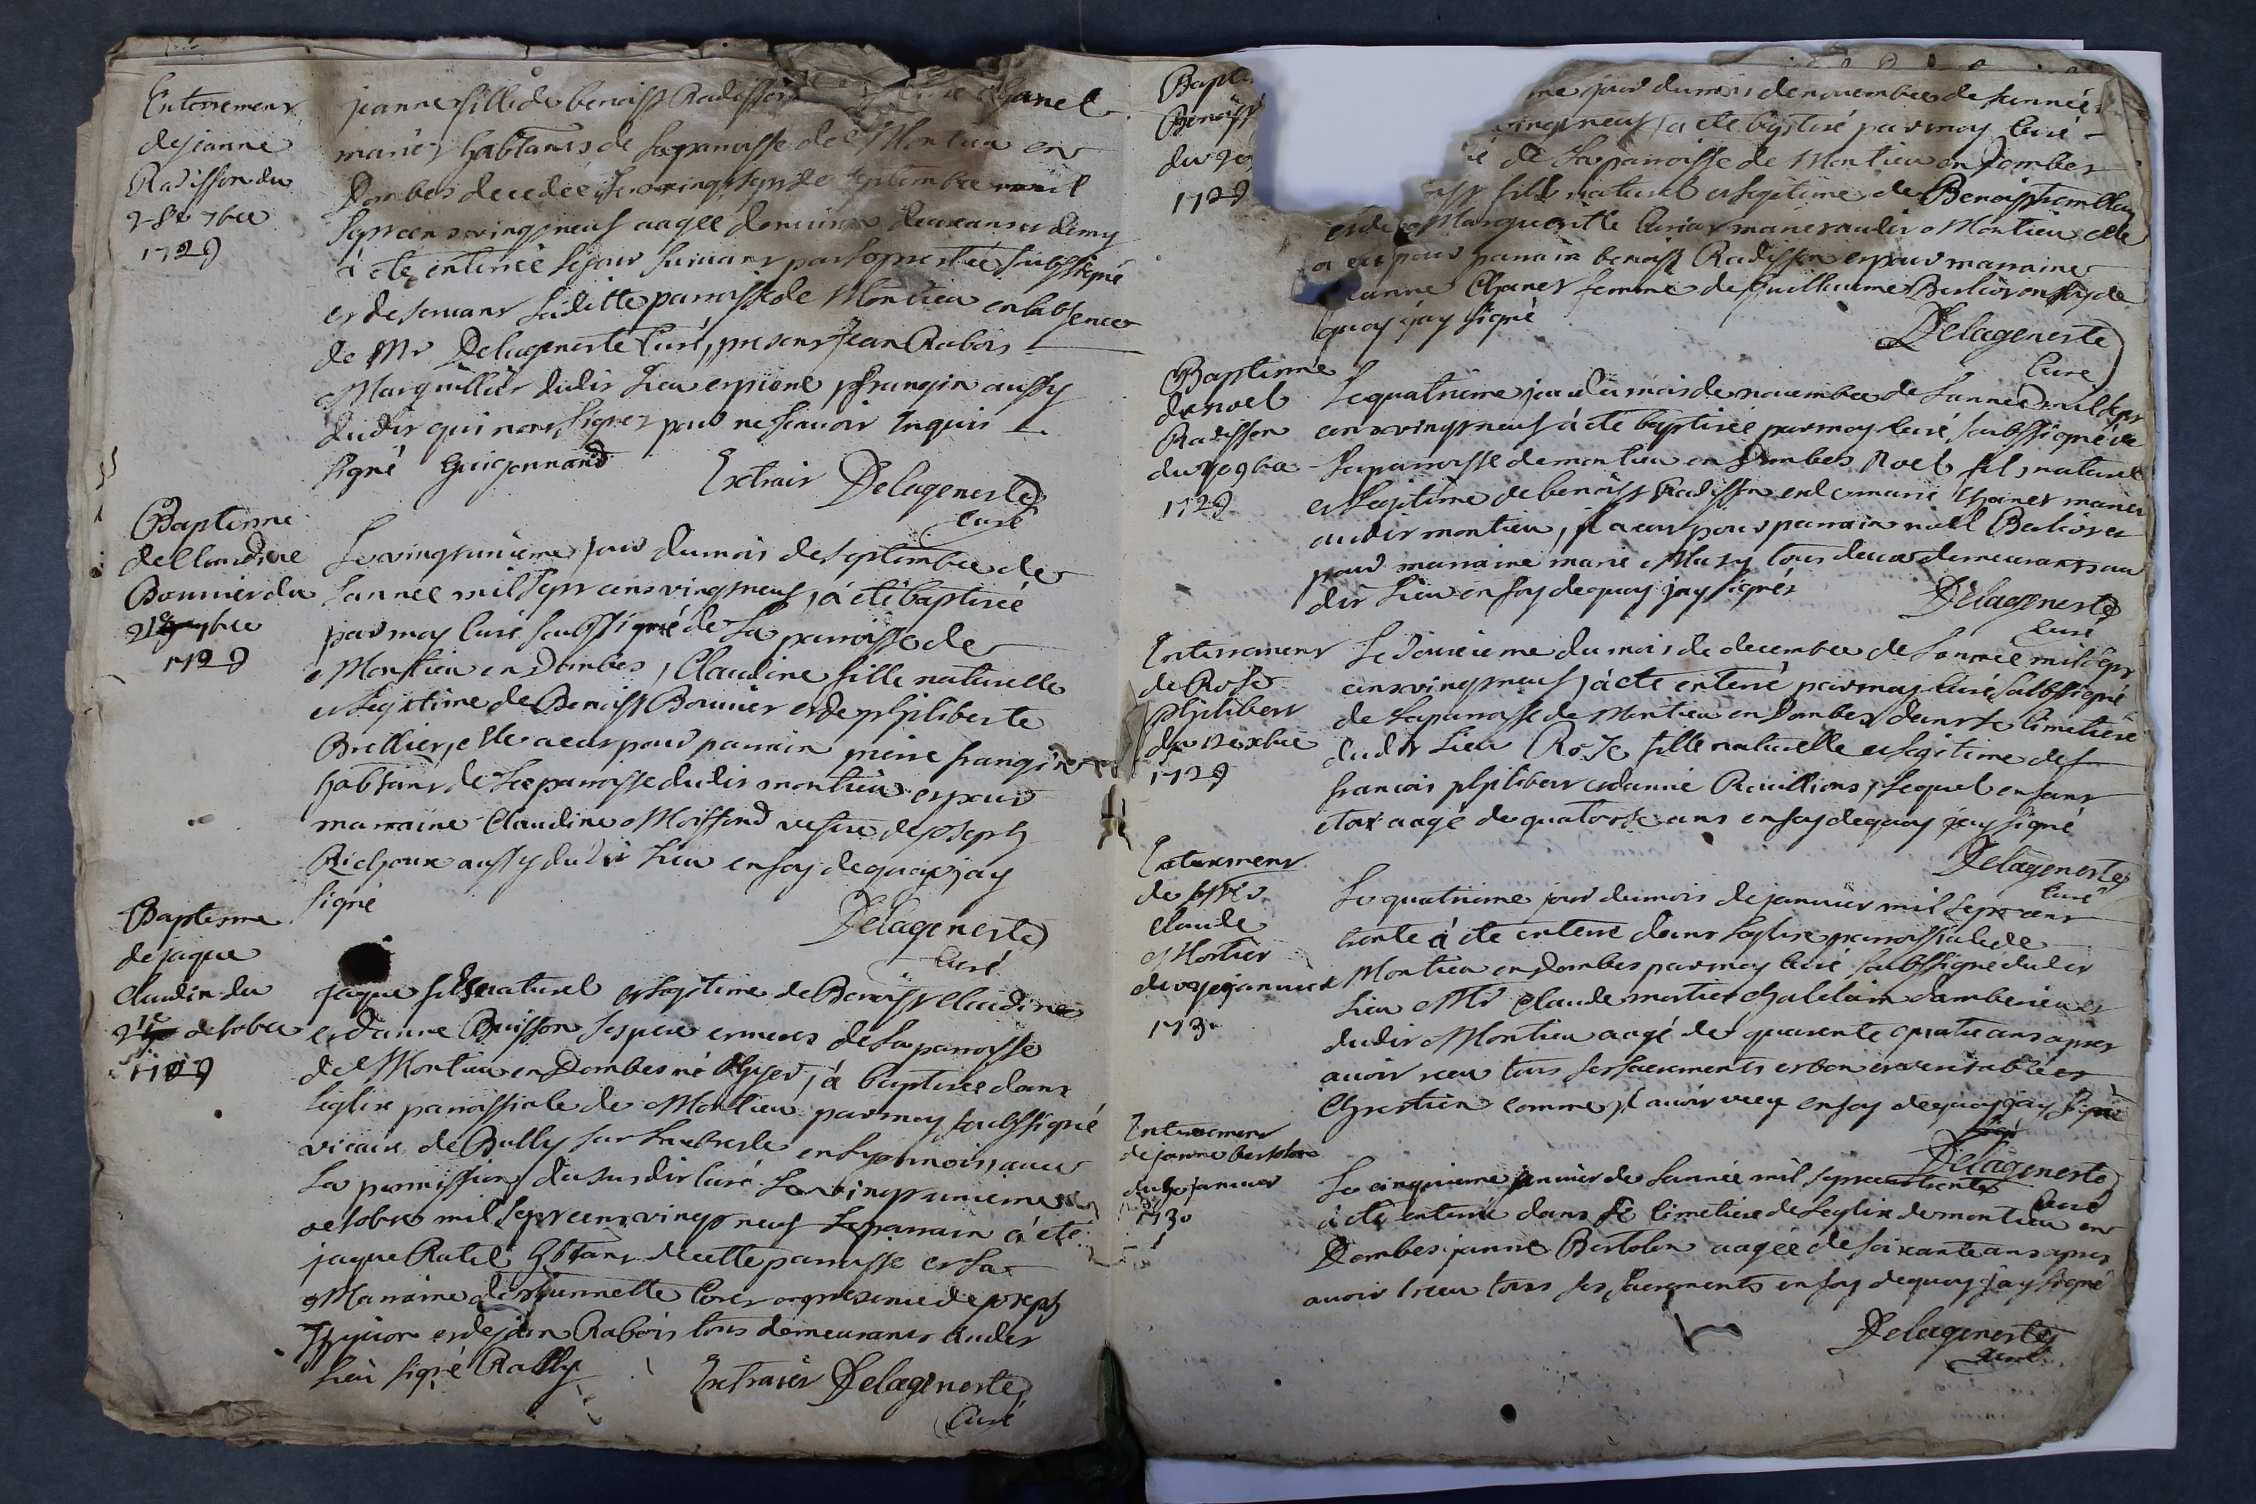 Enterrement
de jeanne
Radisson du
28e 7bre
1729
jeanne fille de benoist Radisson chanel
mariés habitants de la paroisse de Montieu en
Dombes decedée le vingt sept de septembre mil
sept cens vingt neuf aagée denuiron deux ans et demy
à été enterrée le jour suivant par le prestre soubssigné
et deservant laditte paroisse de Montieu en labsence
de Mr Delageneste Curé, present Jean Rabois
Marguillier dudit Lieu et pierre françon aussy
dudit qui nont signez pour ne scavoir Enquis
signé Guigonnand Extrait Delageneste
curé
Baptesme
de Claudine
Bonnier du
21e 7bre
1729
Le vingt unieme jour du mois de septembre de
Lannee mil sept cens vingt neuf, à été baptisée
par moy Curé soubssigné de La paroisse de
Montieu en Dombes, Claudine fille naturelle
et Legitime de Benoist Bonnier et de philiberte
Brellier, elle a eut pour parrain pierre françon
habitant de La paroisse dudit montieu et pour
marraine Claudine Moissond vefve de Joseph
Richoux aussy dudit Lieu en foy de quoy jay
signé
Delageneste
Curé
Baptesme
de jaque
claudin du
21e octobre
1729
jaque fils naturel et legitime de Benoist Claudin
et danne Buisson ses pere et meres de la paroisse
de Montieu en Dombes né hyer, à baptisée dans
leglise paroissiale de Montieu par moy soubssigné
vicaire de Bully sur Larbresle en Lyonnois avec
La permission du susdit Curé Le vingt unieme
octobre mil sept cens vingt neuf Le parrain à été
jaque Ratel hbtant de cette paroisse et la
Marraine estiennette Coret en presence de joseph
et de jean Rabois tous demeurants dudit
Lieu signé Rally Extrait Delageneste
Curé
Bapt
Benoist
du
1729
me jour du mois de novembre de Lannée
vingt neuf, a été baptisé par moy Curé
é de La paroisse de Montieu en Dombes
oist fils naturel et legitime de Benoist
et de Marguerite mariés audit Montieu elle
a eu pour parrain benoist Radisson et pour marraine
eanne Chanet femme de Guillaume Berlioz en foy de
quoy jay signé
Delageneste
Curé
Baptesme
de noel
Radisson
du 4e 9bre
1729
Le quatrieme jour du mois de novembre de Lannee mil sept
cens vingt neuf à été baptisée par moy Curé soubssigné de
La paroisse de montieu en Dombes Noel fils naturel
et Legitime de benoist Radisson et de marie Chanet mariés
audit montieu, il a eut pour parrain noel Berlioz et
pour marraine marie Mury tous deux demeurants au
dit Lieu en foy de quoy jay signé
Delageneste
Curé
Enterrement
de Rose
philibert
du 12e xbre
1729
Le douzieme du mois de decembre de Lannee mil sept
cens vingt neuf, à été enterré par moy Curé soubssigné
de La paroisse de Montieu en Dombes dans le cimetiere
dudit Lieu Rose fille naturelle et legitime de
francois philibert et danne Rouillions, Lequel enfant
étoit aagé de quatorse ans en foy de quoy jay signé
Delageneste
Curé
Enterrement
de
claude
Mortier
du 4e janvier
1730
Le quatrieme jour du mois de janvier mil sept cens
trente à été enterré dans Leglise paroissiale de
Montieu en Dombes par moy Curé soubssigné dudit
Lieu Mr Claude mortier chatelain damberieu et
dudit Montieu aagé de quarente quatre ans apres
avoir receu tous ses sacrements et bon et veritable
Chrestien comme il avoit vecu en foy de quoy jay signé
Delageneste
Curé
Enterrement
de janne bertolon
du 5e janvier
1730
Le cinquieme janvier de Lannée mil sept cens trente
à été enterrée dans Le cimetiere de Leglise de montieu en
Dombes janne Bertolon aagée de soixante ans apres
avoir receu tous ses sacrements en foy de quoy jay signé
Delageneste
curé